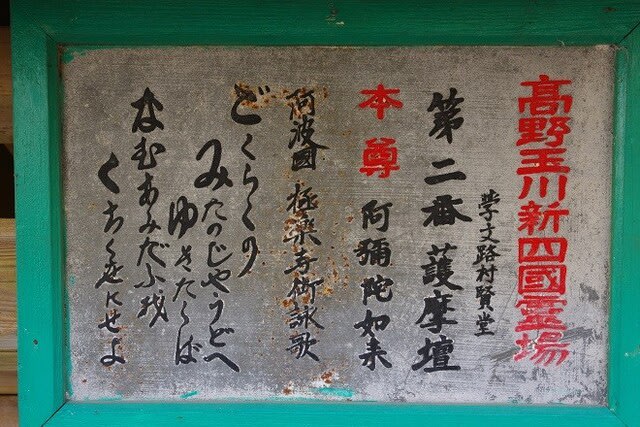 高野玉川新四國霊場
学文路村賢堂
第二番 護摩壇
本尊 阿彌陀如来
阿波國 極楽寺御詠歌
ごくらくの
みだのじやうどへ
ゆきたくば
なむあみだぶ
くちくせにせよ